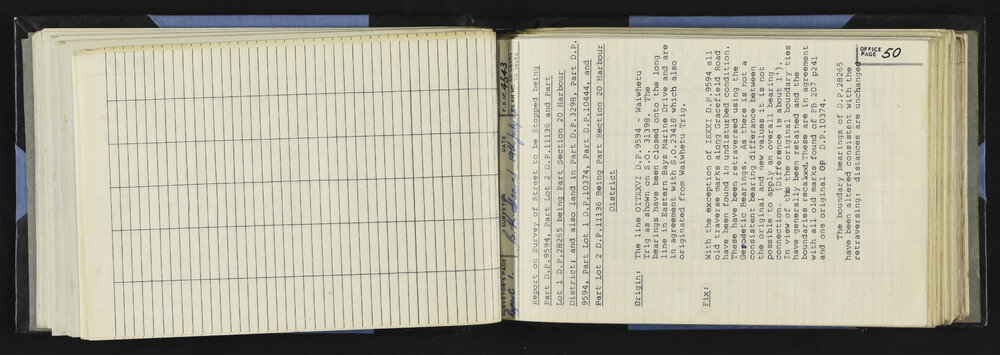 OFFICE PAGE 50
SURVEYOR'S PAGE
Report 1.
SURVEYOR
DATE
F.B. No. 4543
Report on Survey of Street to be Stopped being
Part D.P.9594, Part Lot 2 D.P.11136 and Part
Lot 1 D.P.28265 being Part Section 20 Harbour
District; and also land in Part D.P.3298, Part D.P.
9594, Part Lot 1 D.P.10374, Part D.P.10444, and
Part Lot 2 D.P.11136 Being Part Section 20 Harbour
District
Origin: The line OITXXVI D.P.9594 - Waiwhetu
Trig as shown on S.O. 31398. The
bearings have been closed onto the long
line in Eastern Bays Marine Drive and are
in agreement with S.O.23418 which also
originated from Waiwhetu Trig.
Fix: With the exception of ISXXI D.P.9594 all
old traverse marks along Gracefield Road
have been found in undisturbed condition.
These have been retraversed using the
Geodetic Bearings. As there is not a
consistent bearing difference between
the original and new values it is not
possible to apply an overall bearing
connection (Difference is about 1').
In view of this the original boundary ties
have generally been retained and the
boundaries recalced. These are in agreement
with all old marks found of FB 207 p241
and one original OP D.P.10374.
The boundary bearings of D.P.28265
have been altered consistent with the
retraversing: distances are unchanged